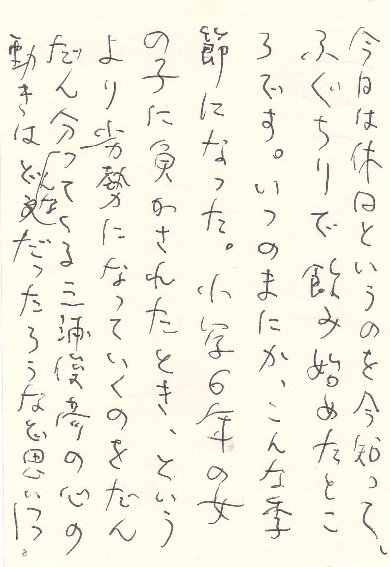 今日は休日というのを今知って、
ふぐちりで飲み始めたとこ
ろです。いつのまにか、こんな季
節になった。小学6年の女
の子に負かされたとき、という
より劣勢になっていくのをだん
だん分ってくる三浦俊彦の心の
動きはどんなだったろうなど思いつつ